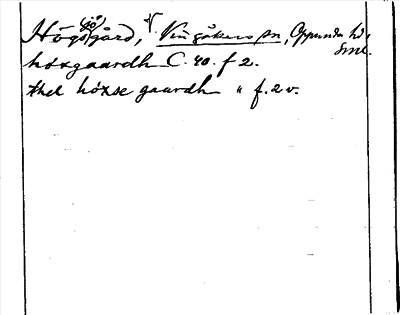 Högsjögård, Vingåkers sn, Oppunda hd, Sml.
höxgaardh C. 40. f 2.
thel höxse gaardh " f. 2 v.